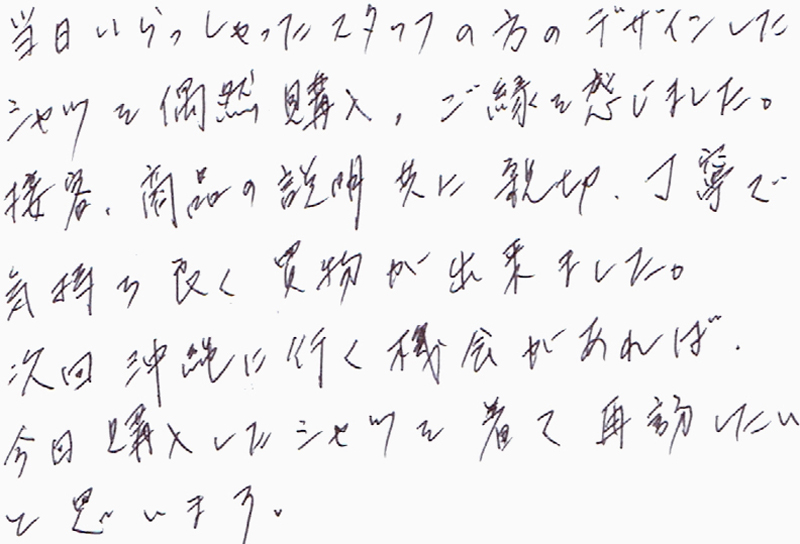 当日いらっしゃったスタッフの方のデザインした
シャツを偶然購入、ご縁を感じました。
接客、商品の説明共に親切、丁寧で
気持ち良く買物が出来ました。
次回沖縄に行く機会があれば、
今回購入したシャツを着て再訪したい
と思います。